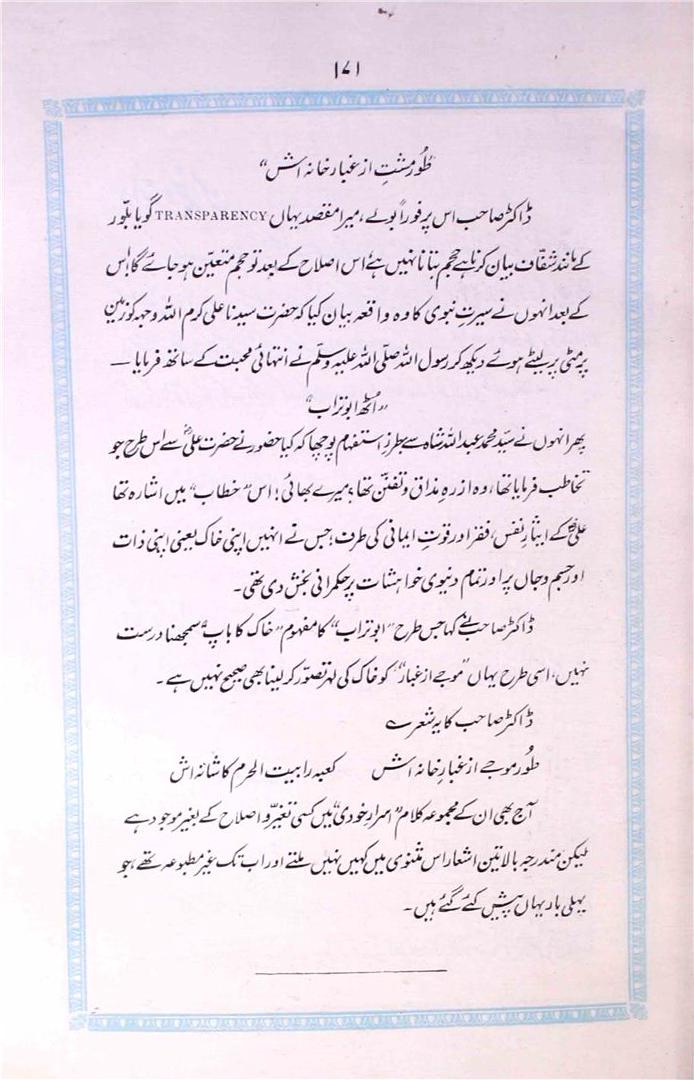 ۱۷۱
طُور مشتِ از غبار خانہ اش“
ڈاکٹر صاحب اس پر فوراً بولے، میرا مقصد یہاں TRANSPARENCY گویا بلّور
کے مانند شفّاف بیان کرنا ہے حجم بتانا نہیں ہے اس اصلاح کے بعد تو حجم متعیّن ہو جائے گا، اس
کے بعد انہوں نے سیرتِ نبوی کا وہ واقعہ بیان کیا کہ حضرت سیدنا علی کرم اللہ وجہہ کو زمین
پر مٹی پر لیٹے ہوئے دیکھ کر رسول اللہ صلّی اللہ علیہ وسلّم نے انتہائی محبت کے ساتھ فرمایا —
”اُٹھ ابو تراب“
پھر انہوں نے سیّد محمد عبد اللہ شاہ سے بطرزِ استفہام پوچھا کہ کیا حضور نے حضرت علیؓ سے اس طرح جو
تخاطب فرمایا تھا، وہ از رہِ مذاق و تفنّن تھا؛ میرے بھائی! اس ”خطاب“ میں اشارہ تھا
علیؓ کے ایثارِ نفس، فقر اور قوتِ ایمانی کی طرف؛ جس نے انہیں اپنی خاک یعنی اپنی ذات
اور جسم و جاں پر اور تمام دنیوی خواہشات پر حکمرانی بخش دی تھی۔
ڈاکٹر صاحب نے کہا جس طرح ”ابو تراب“ کا مفہوم ”خاک کا باپ“ سمجھنا درست
نہیں، اسی طرح یہاں ”موجے از غبار“ کو خاک کی لہر تصوّر کر لینا بھی صحیح نہیں ہے۔
ڈاکٹر صاحب کا یہ شعر ؎
طُور موجے از غبارِ خانہ اش کعبہ را بیت الحرم کاشانہ اش
آج بھی ان کے مجموعہ کلام ”اسرارِ خودی“ میں کسی تغیّر و اصلاح کے بغیر موجود ہے
لیکن مندرجہ بالا تین اشعار اس مثنوی میں کہیں نہیں ملتے اور اب تک غیر مطبوعہ تھے، جو
پہلی بار یہاں پیش کئے گئے ہیں۔